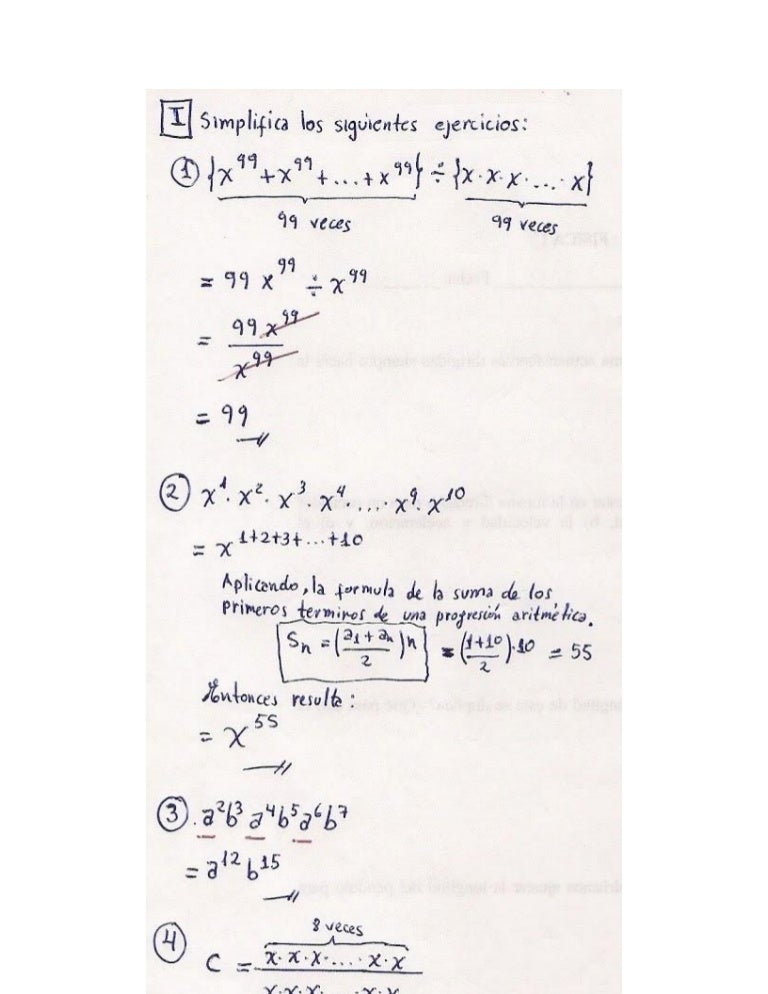 I Simplifica los siguientes ejercicios:
① {x⁹⁹+x⁹⁹+...+x⁹⁹} ÷ {x·x·x·...·x}
99 veces 99 veces
= 99x⁹⁹ ÷ x⁹⁹
= 99x⁹⁹/x⁹⁹
= 99
② x¹·x²·x³·x⁴·...·x⁹·x¹⁰
= x¹⁺²⁺³⁺···⁺¹⁰
Aplicando, la formula de la suma de los
primeros terminos de una progresión aritmética.
Sn = ((a1+an)/2)n = ((1+10)/2)·10 = 55
Entonces resulta:
= x⁵⁵
③ a²b³a⁴b⁵a⁶b⁷
= a¹²b¹⁵
④ 8 veces
C = x·x·x·...·x·x
x·x·x·...·x·x